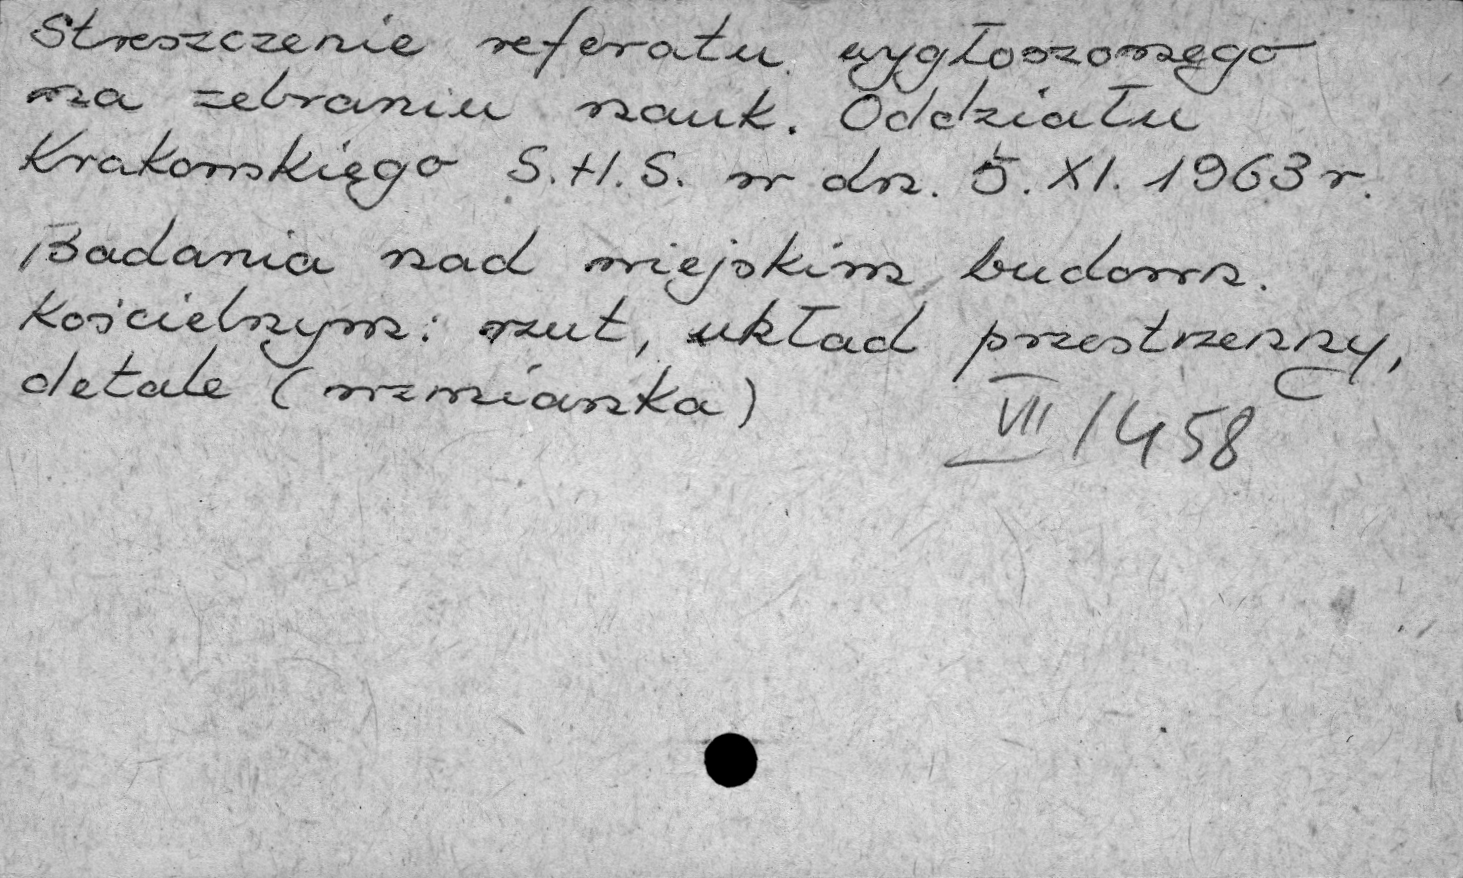 Streszczenie referatu wygłoszonego
na zebraniu nauk. Oddziału
Krakowskiego S.H.S. w dn. 5. XI. 1963 r.
Badania nad miejskim budown.
Kościelnym: rzut, układ przestrzenny,
detale (wzmianka)
VII/458